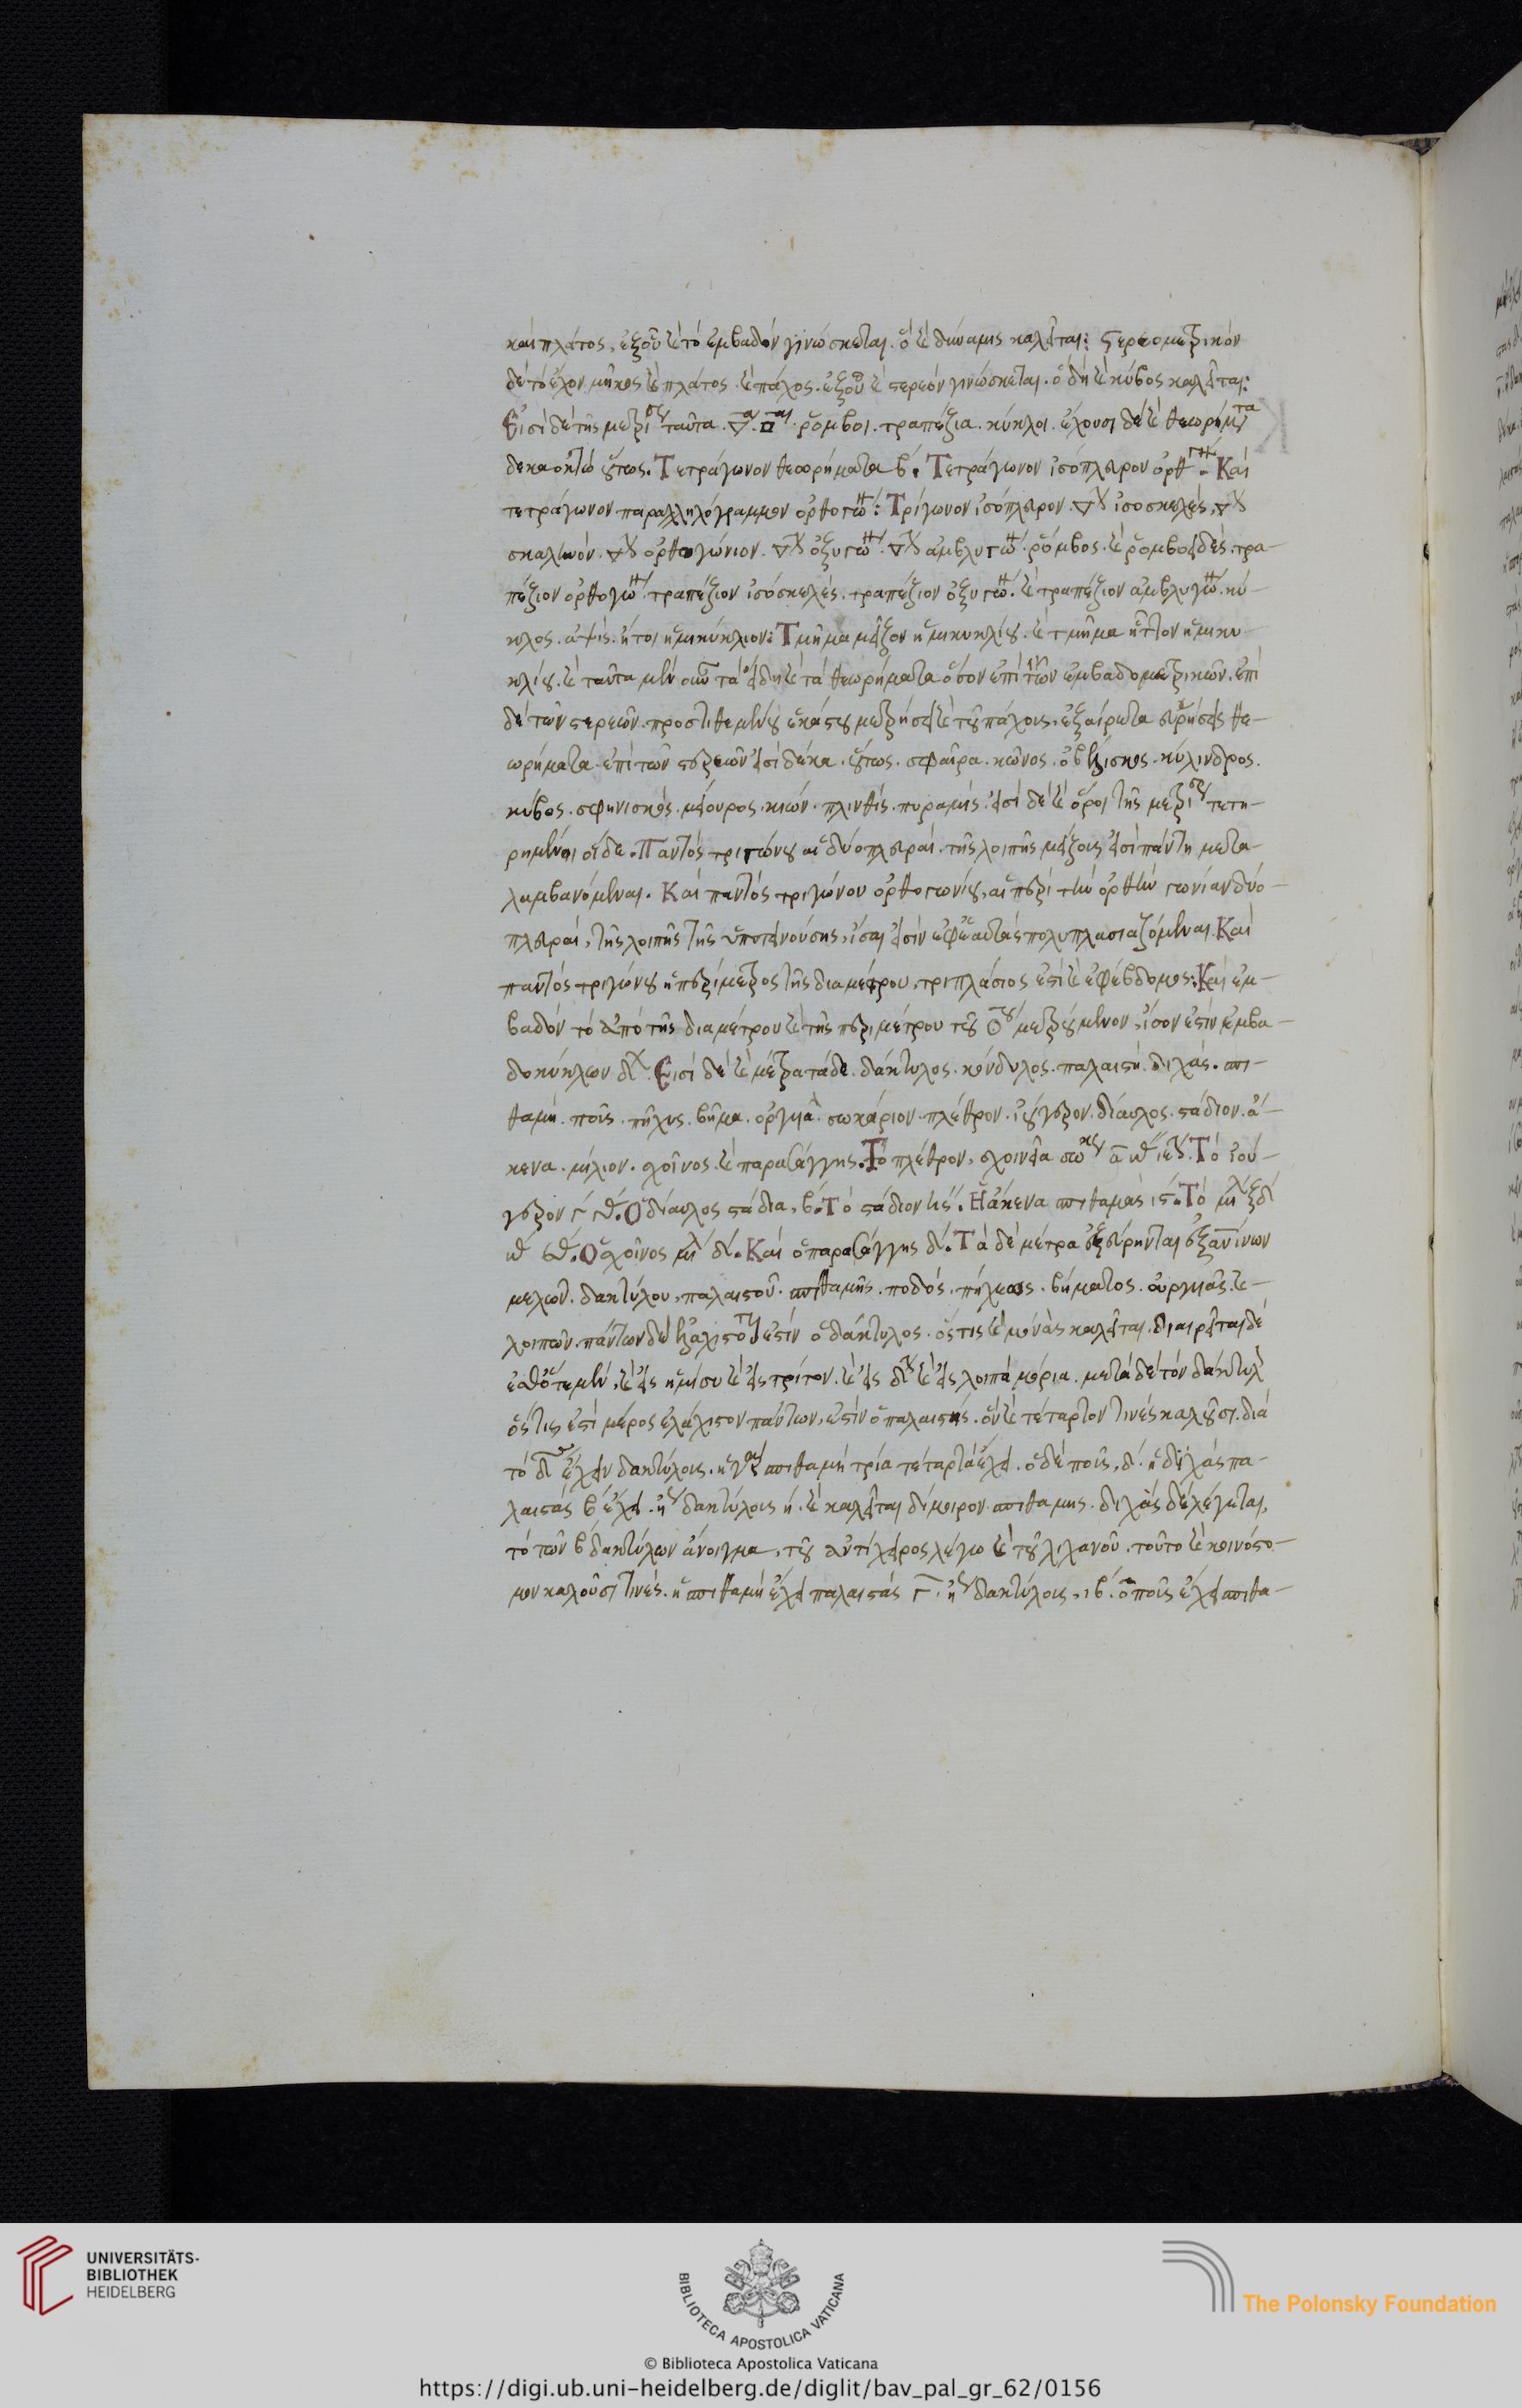 καὶ πλάτος, ἐξ οὗ καὶ τὸ ἐμβαδὸν γινώσκεται. ὃ καὶ δύναμις καλεῖται: στερεομετρικὸν
δὲ τὸ ἔχον μῆκος καὶ πλάτος καὶ πάχος. ἐξ οὗ καὶ στερεὸν γινώσκεται. ὃ δὴ καὶ κύβος καλεῖται:
Εἰσὶ δὲ τῆς μετρήσεως ταῦτα. ῥόμβοι. τραπέζια. κύκλοι. ἔχουσι δὲ καὶ θεωρήματα
δεκαοκτὼ οὕτως. Τετράγωνον θεωρήματα β. Τετράγωνον ἰσόπλευρον ὀρθογώνιον. Καὶ
τετράγωνον παραλληλόγραμμον ὀρθογώ: Τρίγωνον ἰσόπλευρον. ἰσοσκελές.
σκαληνόν. ὀρθογώνιον. ὀξυγώ. ἀμβλυγώ. ῥόμβος. καὶ ῥομβοειδές. τρα-
πέζιον ὀρθογώ. τραπέζιον ἰσοσκελές. τραπέζιον ὀξυγώ. καὶ τραπέζιον ἀμβλυγώ. κύ-
κλος. ἀψίς. ἤτοι ἡμικύκλιον: Τμῆμα μεῖζον ἡμικυκλίου. καὶ τμῆμα ἧττον ἡμικυ-
κλίου. καὶ ταῦτα μὲν οὖν τὰ εἴδη καὶ τὰ θεωρήματα ὅσον ἐπὶ τῶν ἐμβαδομετρικῶν. ἐπὶ
δὲ τῶν στερεῶν. προστιθεμένου ἑκάστου μετρήσει καὶ τοῦ πάχους. ἐξαίρετα θε-
ωρήματα ἐπὶ τῶν στερεῶν εἰσὶ δέκα. οὕτως. σφαῖρα. κῶνος. ὀβελίσκος. κύλινδρος.
κύβος. σφηνίσκος. μείουρος. κίων. πλινθίς. πυραμίς. εἰσὶ δὲ καὶ ὅροι τῆς μετρήσεως τετη-
ρημένοι οἵδε. Παντὸς τριγώνου αἱ δύο πλευραὶ. τῆς λοιπῆς μείζους εἰσὶ πάντη μετα-
λαμβανόμεναι. Καὶ παντὸς τριγώνου ὀρθογωνίου, αἱ περὶ τὴν ὀρθὴν γωνίαν δύο
πλευραί, τῆς λοιπῆς τῆς ὑποτεινούσης, ἴσαι εἰσὶν ἐφ' ἑαυτὰς πολυπλασιαζόμεναι. Καὶ
παντὸς τριγώνου ἡ περίμετρος τῆς διαμέτρου, τριπλάσιος ἐστὶ καὶ ἐφέβδομος: Καὶ ἐμ-
βαδὸν τὸ ἀπὸ τῆς διαμέτρου καὶ τῆς περιμέτρου τοῦ μετρούμενον, ἴσον ἐστὶν ἐμβα-
δοκύκλων. Εἰσὶ δὲ καὶ μέτρα τάδε. δάκτυλος. κόνδυλος. παλαιστή. διχάς. σπι-
θαμή. ποῦς. πῆχυς. βῆμα. ὀργυιά. σωκάριον. πλέθρον. ἰούγερον. δίαυλος. στάδιον. ἄ-
κενα. μίλιον. σχοῖνος. καὶ παρασάγγης. Τὸ πλέθρον, σχοινία σω. Τὸ ἰού-
γερον. Ὁ δίαυλος στάδια, β. Τὸ στάδιον. Ἡ ἄκενα σπιθαμὰς ις. Τὸ μίλιον
Ὁ σχοῖνος μίλια δ. Καὶ ὁ παρασάγγης δ. Τὰ δὲ μέτρα ἐξεύρηνται ἐξ ἀνθρωπίνων
μελῶν. δακτύλου, παλαιστοῦ. σπιθαμῆς. ποδός. πήχεως. βήματος. οὐργυιᾶς. καὶ
λοιπῶν. πάντων δὲ ἐλάχιστον ἐστὶν ὁ δάκτυλος. ὅστις καὶ μονὰς καλεῖται. διαιρεῖται δὲ
ἔσθ' ὅτε μὲν, καὶ εἰς ἥμισυ καὶ εἰς τρίτον. καὶ εἰς καὶ εἰς λοιπὰ μόρια. μετὰ δὲ τὸν δάκτυλον
ὅστις ἐστὶ μέρος ἐλάχιστον πάντων, ἐστὶν ὁ παλαιστής. ὃν καὶ τέταρτον τινὲς καλοῦσι. διὰ
τὸ ἔχειν δακτύλους. ἡ σπιθαμὴ τρία τέταρτα ἔχει. ὁ δὲ ποῦς, δ. ἡ διχὰς πα-
λαιστὰς β ἔχει. ἤγουν δακτύλους η. καὶ καλεῖται δίμοιρον σπιθαμῆς. διχὰς δὲ λέγεται,
τὸ τῶν β δακτύλων ἄνοιγμα, τοῦ ἀντίχειρος λέγω καὶ τοῦ λιχανοῦ. τοῦτο καὶ κοινόστο-
μον καλοῦσι τινές. ἡ σπιθαμὴ ἔχει παλαιστὰς γ. ἤγουν δακτύλους, ιβ. ὁ ποῦς ἔχει σπιθα-
UNIVERSITÄTS-
BIBLIOTHEK
HEIDELBERG
BIBLIOTECA APOSTOLICA VATICANA
The Polonsky Foundation
© Biblioteca Apostolica Vaticana
https://digi.ub.uni-heidelberg.de/diglit/bav_pal_gr_62/0156